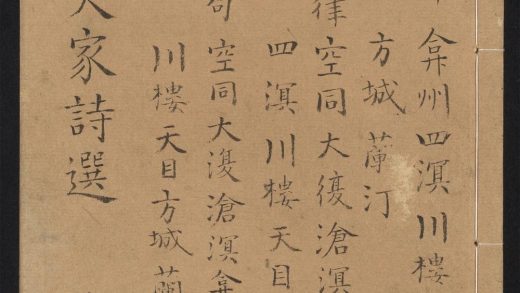 弇州四溟川樓
方城蘭汀
律空同大復滄溟
四溟川樓天目
句空同大復滄溟弇
川樓天目方城蘭
大家詩選